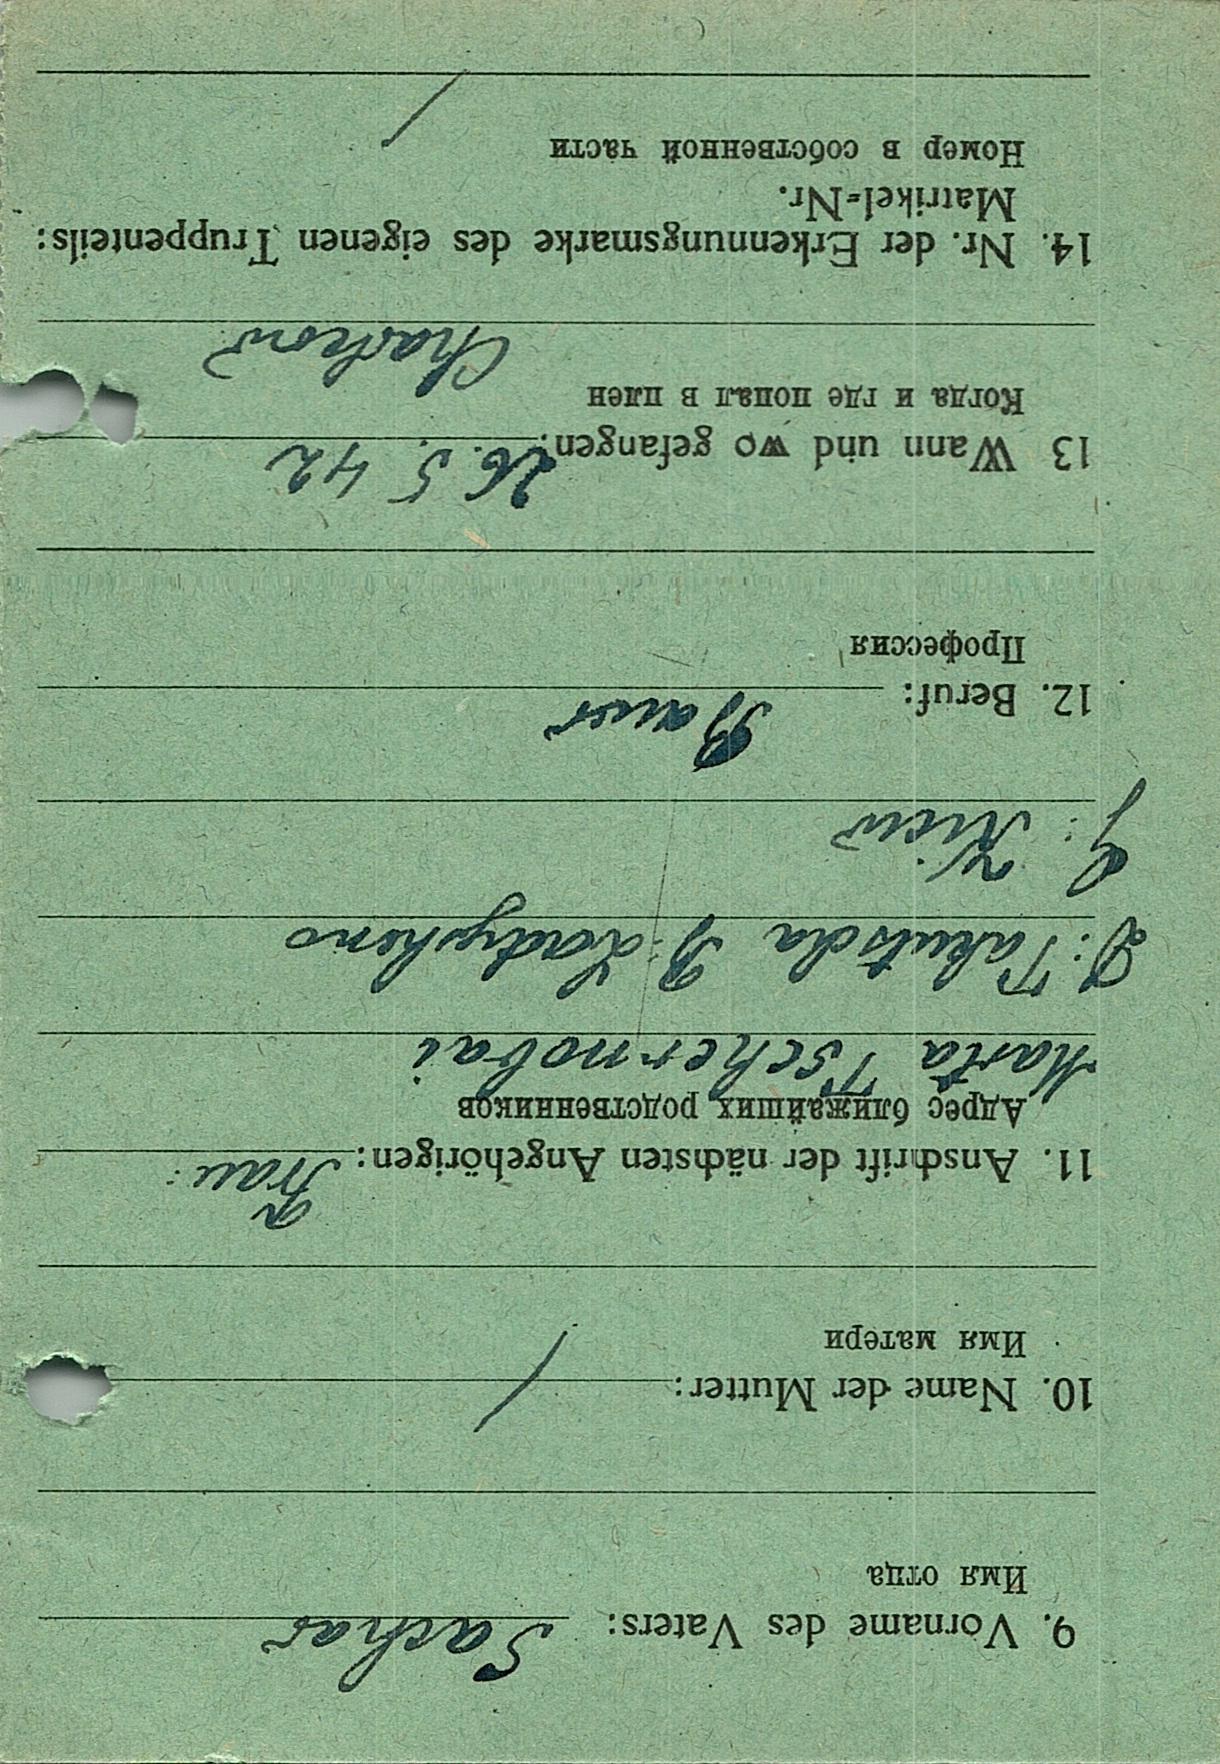 9. Vorname des Vaters: Sachar
Имя отца
10. Name der Mutter: /
Имя матери
11. Anschrift der nächsten Angehörigen: Frau:
Адрес ближайших родственников
Marta Tschernobai
D: Takutscha B: Ladysheno
G: Kiew
12. Beruf: Bauer
Профессия
13 Wann und wo gefangen: 26. 5. 42
Когда и где попал в плен
Charkow
14. Nr. der Erkennungsmarke des eigenen Truppenteils:
Matrikel-Nr.
Номер в собственной части /